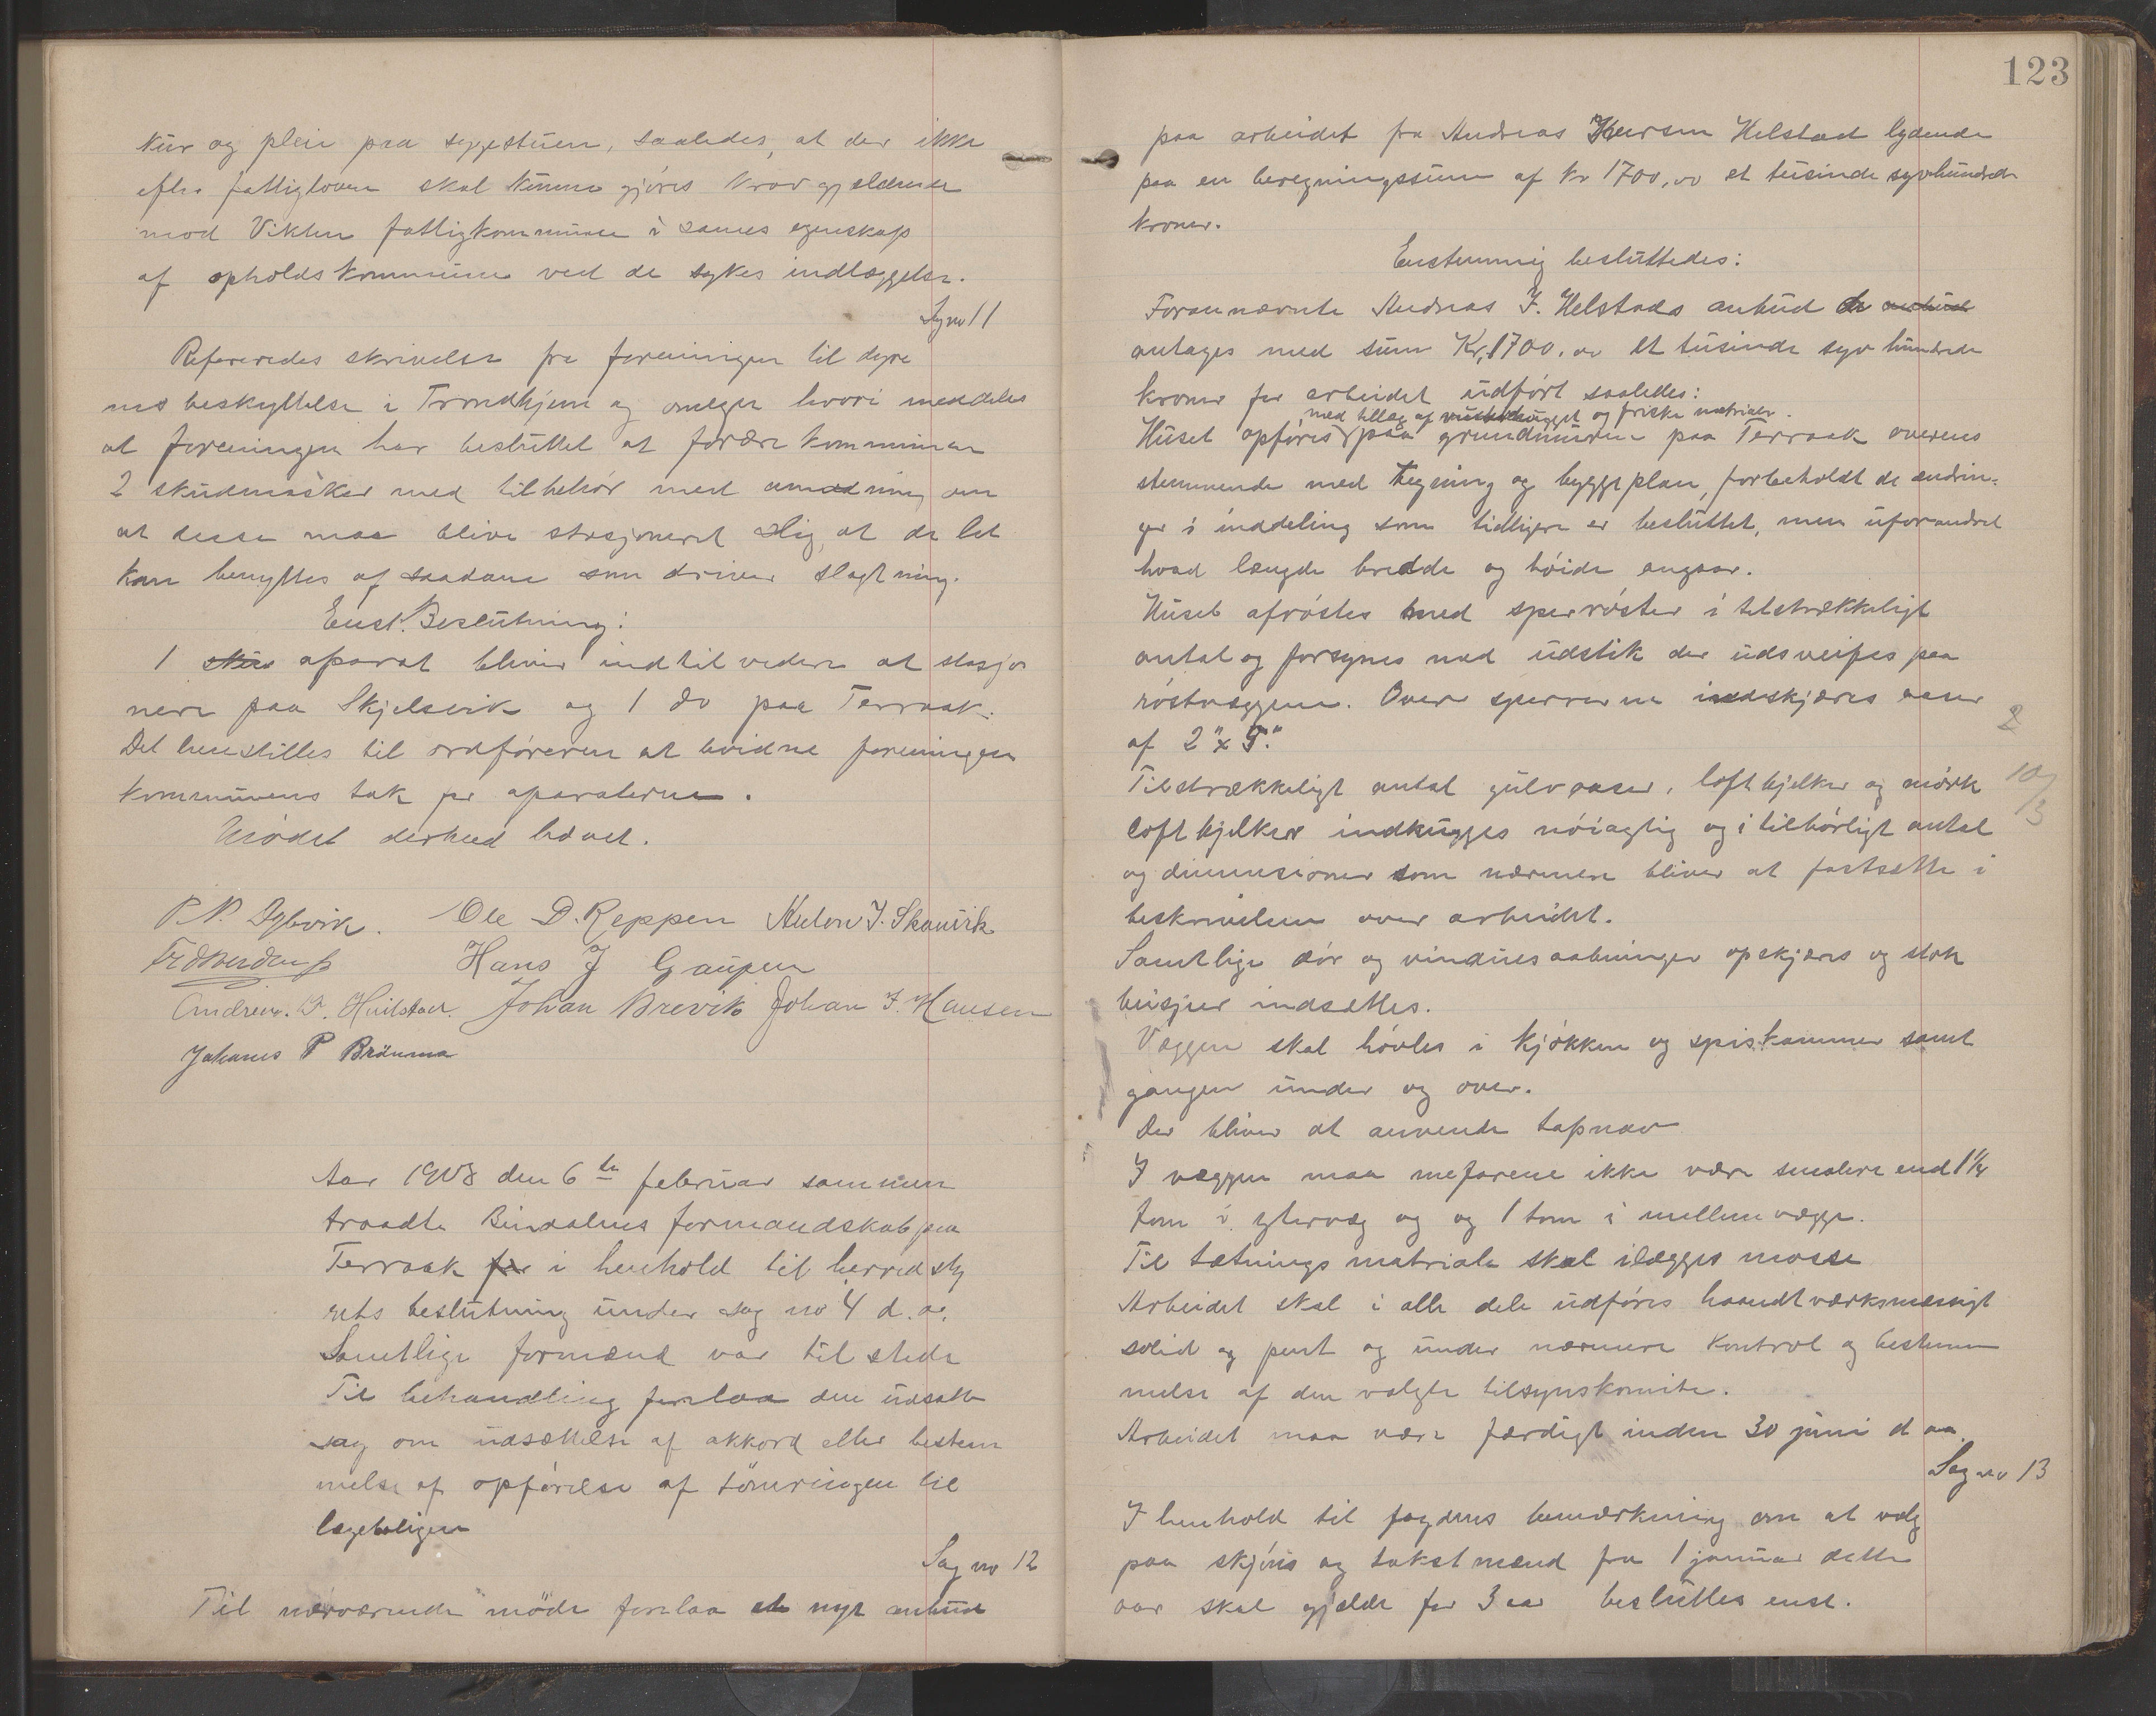 kur og pleie paa sygestuen, saaledes, at der ikke
efter fattigloven skal kunne gjøres krav gjældende
mod Vikten fattigkommune i sames egenskap
af opholdskommune ved de sykes indlæggelse.
Sag no 11
Refereredes skrivelse fra foreningen til dyre
nes beskyttelse i Trondhjem og omegn hvori meddeles
at foreningen har besluttet at forære kommunen
2 skudmasker med tilbehør med anmodning om
at disse maa blive stasjoneret slig, at de let
kan benyttes af saadane som driver slagtning.
Enst. Beslutning:
1 aparat bliver indtil videre at stasjo
nere paa Skjelsvik og 1 do paa Terraak.
Det henstilles til ordføreren at bevidne foreningen
kommunens tak for aparaterne.
Mødet dermed hævet.
P. P. Dybvik. Ole D. Reppen Anton J. Skanvik
Hans J Gaupen
Andreas. F. Heilstad. Johan Brevik Johan F. Hansen
Johanes P Brönmo
Aar 1908 den 6te februar sammen
traadte Bindalens formandskab paa
Terraak for i henhold til herredsty
rets beslutning under sag no 4 d. a.
Samtlige formænd var tilstede
Til behandling forelaa den udsatte
sag om udsættelse af akkord eller bestem
melse af opførelse af tømringen til
lægeboligen
Sag no 12
Til nærværende møde forelaa et nyt anbud
123
paa arbeidet fra Andreas Helstad lydende
paa en beregningssum af kr 1700,00 et tusinde syvhundrede
kroner.
Enstemmig besluttedes:
Forannævnte Andreas F. Helstads anbud de anbud
antages med sum Kr. 1700.00 et tusinde syv hundrede
kroner for arbeidet udført saaledes:
med tillæg af og friske matrialer.
Huset opføres paa grundmuren paa Terraak overens
stemmende med tegning og byggeplan, forbeholdt de ændrin-
ger i inddeling som tidligere er besluttet, men uforandret
hvad længde bredde og høide angaar.
Huset afrøstes med sperrøster i tilstrækkeligt
antal og forsynes med udstik der udsveifes paa
røstvæggene. Over sperrerne indskjæres aaser
af 2" x 5".
2
Tilstrækkeligt antal gulvaaser, loftbjelker og mørk
10/3
loftbjelker indhugges nøiagtig og i tilbørligt antal
og dimensioner som nærmere bliver at fastsætte i
beskrivelsen over arbeidet.
Samtlige dør og vinduesaabninger opskjæres og stok
beisjer indsættes.
Væggen skal høvles i kjøkken og spiskammer samt
gangen under og over.
Der bliver at anvende tapnav
I væggen maa mefarene ikke være smalere end 1 1/4
tom i ytervæg og og 1 tom i mellemvægge.
Til tætnings matriale skal ilægges mosse
Arbeidet skal i alle dele udføres haandtværksmæssigt
solid og pent og under nærmere kontrol og bestem
melse af den valgte tilsynskomite.
Arbeidet maa være færdigt inden 30 juni d aa.
Sag no 13
I henhold til fogdens bemærkning om at valg
paa skjøns og takstmænd fra 1 januar dette
aar skal gjælde for 3 aar besluttes enst.